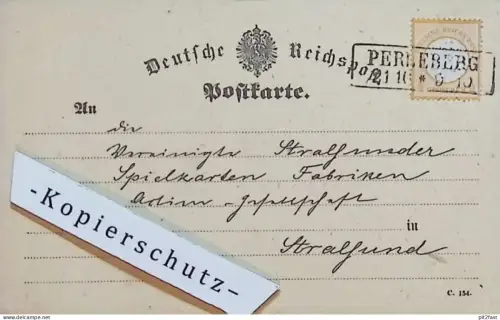 Deutsche Reichspost
PERLEBERG
21 10 * 9-10
Postkarte.
An
die
Vereinigte Stralsunder
Spielkarten Fabriken
Actien-Gesellschaft
in
Stralsund
-Kopierschutz-
C. 154.